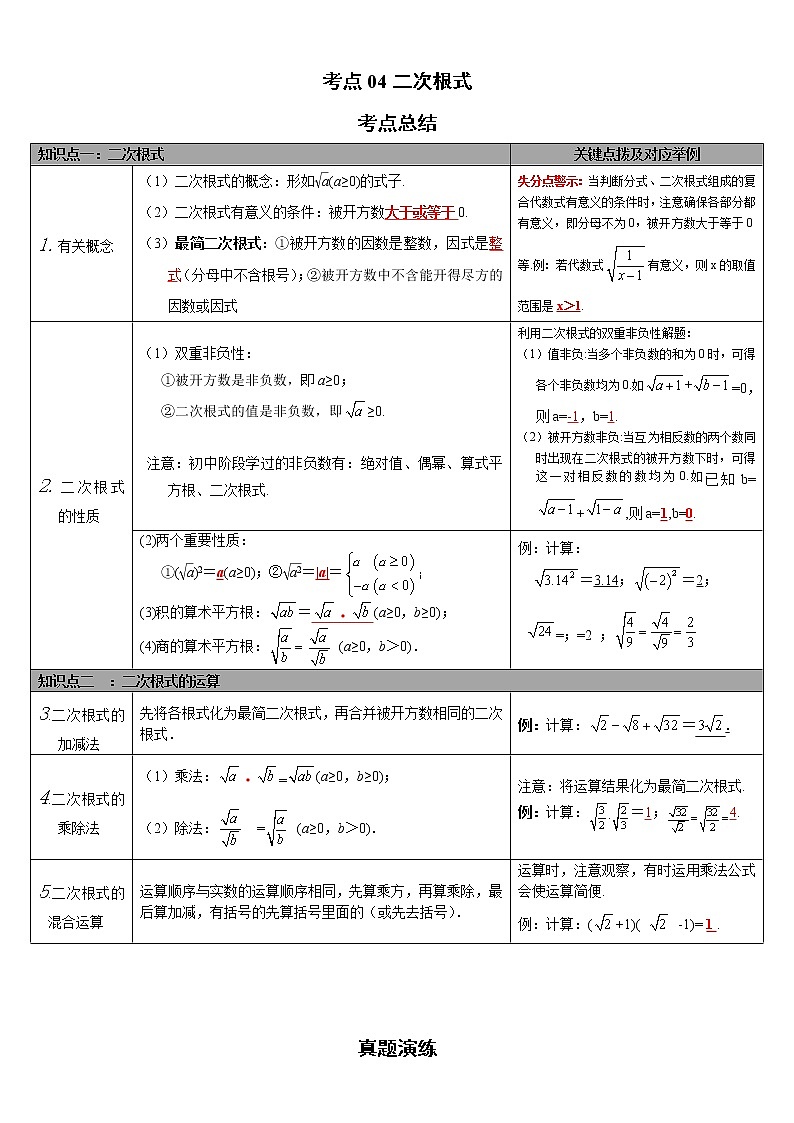 考点 04 二次根式
考点总结
知识点一：二次根式
关键点拨及对应举例
1. 有关概念
（1）二次根式的概念：形如√a(a≥0)的式子.
（2）二次根式有意义的条件：被开方数大于或等于 0.
（3）最简二次根式：①被开方数的因数是整数，因式是整
式(分母中不含根号)；②被开方数中不含能开得尽方的
因数或因式
失分点警示：当判断分式、二次根式组成的复
合代数式有意义的条件时，注意确保各部分都
有意义，即分母不为 0，被开方数大于等于 0
等.例：若代数式 √(1/(x−1)) 有意义，则 x 的取值
范围是 x＞1.
2. 二次根式
的性质
（1）双重非负性：
①被开方数是非负数，即 a≥0；
②二次根式的值是非负数，即 √a ≥0.
注意：初中阶段学过的非负数有：绝对值、偶幂、算式平
方根、二次根式.
利用二次根式的双重非负性解题：
（1）值非负:当多个非负数的和为 0 时，可得
各个非负数均为 0.如 √(a+1) + √(b−1) =0，
则 a=-1，b=1.
（2）被开方数非负:当互为相反数的两个数同
时出现在二次根式的被开方数下时，可得
这一对相反数的数均为 0.如已知 b=
√(a−1) + √(1−a) ,则 a=1,b=0.
(2)两个重要性质：
①(√a)²＝a(a≥0)；②√a²＝|a|＝{a (a≥0) −a (a<0)；
(3)积的算术平方根：√ab＝√a · √b (a≥0，b≥0)；
(4)商的算术平方根：√(a/b) = √a/√b (a≥0，b＞0)．
例：计算：
√3.14² ＝3.14；√(−2)² ＝2；
√24 =；=2 ；√(4/9) = √4/√9 = 2/3
知识点二 ：二次根式的运算
3.二次根式的
加减法
先将各根式化为最简二次根式，再合并被开方数相同的二次
根式．
例：计算：√2 − √8 + √32 ＝3√2．
4.二次根式的
乘除法
（1）乘法：√a · √b =√ab (a≥0，b≥0)；
（2）除法：√a/√b =√(a/b) (a≥0，b＞0)．
注意：将运算结果化为最简二次根式.
例：计算：√(3/2)·√(2/3)＝1；√32/√2=√(32/2)=4.
5.二次根式的
混合运算
运算顺序与实数的运算顺序相同，先算乘方，再算乘除，最
后算加减，有括号的先算括号里面的（或先去括号）．
运算时，注意观察，有时运用乘法公式
会使运算简便.
例：计算：( √2 +1)( √2 -1)= 1 .
真题演练